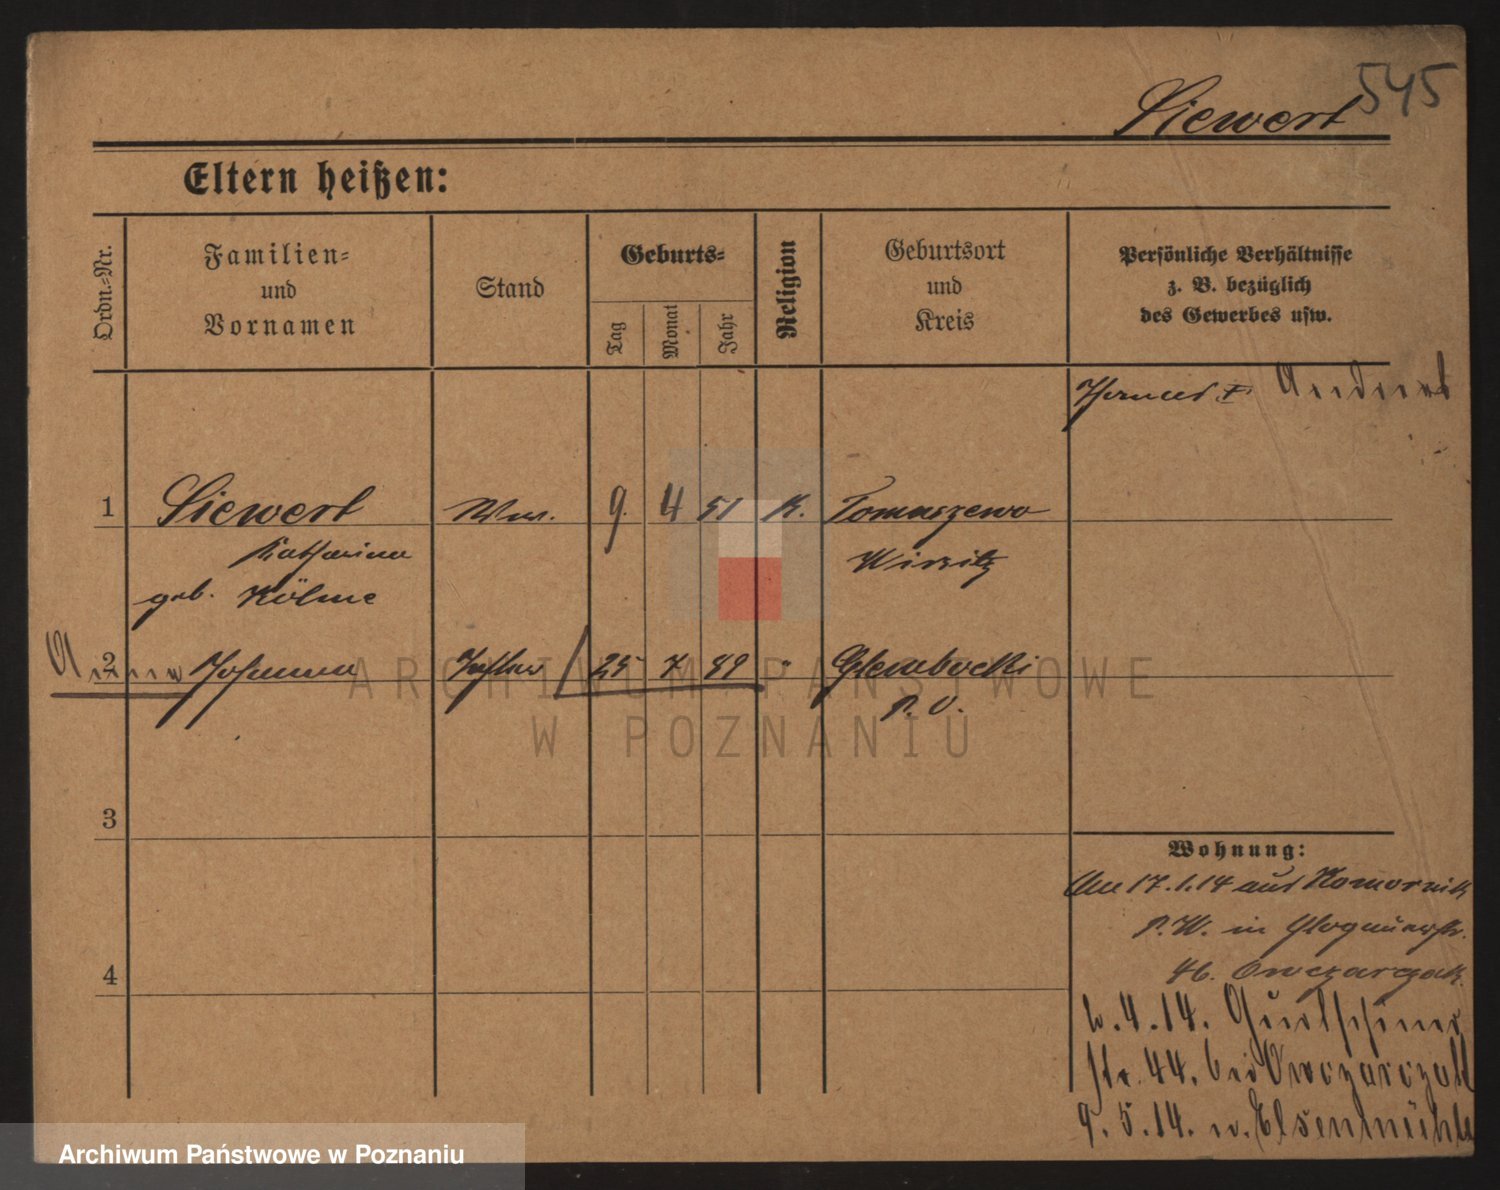 545
Siewert
Eltern heißen:
Ordn.-Nr.
Familien-
und
Vornamen
Stand
Geburts-
Tag
Monat
Jahr
Religion
Geburtsort
und
Kreis
Persönliche Verhältnisse
z. B. bezüglich
des Gewerbes usw.
1 Siewert Ww. 9. 4 51 K. Tomaszewo
Katharina Wirsitz
geb. Kölme
2 Anna Johanna Tochter 25 7 89 " Glembocki
P. O.
3
4
Wohnung:
Am 17.1.14 aus Komornik
P. W. in
46. Owczarzak
2.4.14. Gurtschiner
str. 44. bei Owczarczak
9.5.14. n. Elsenmühle
ARCHIWUM PAŃSTWOWE
W POZNANIU
Archiwum Państwowe w Poznaniu